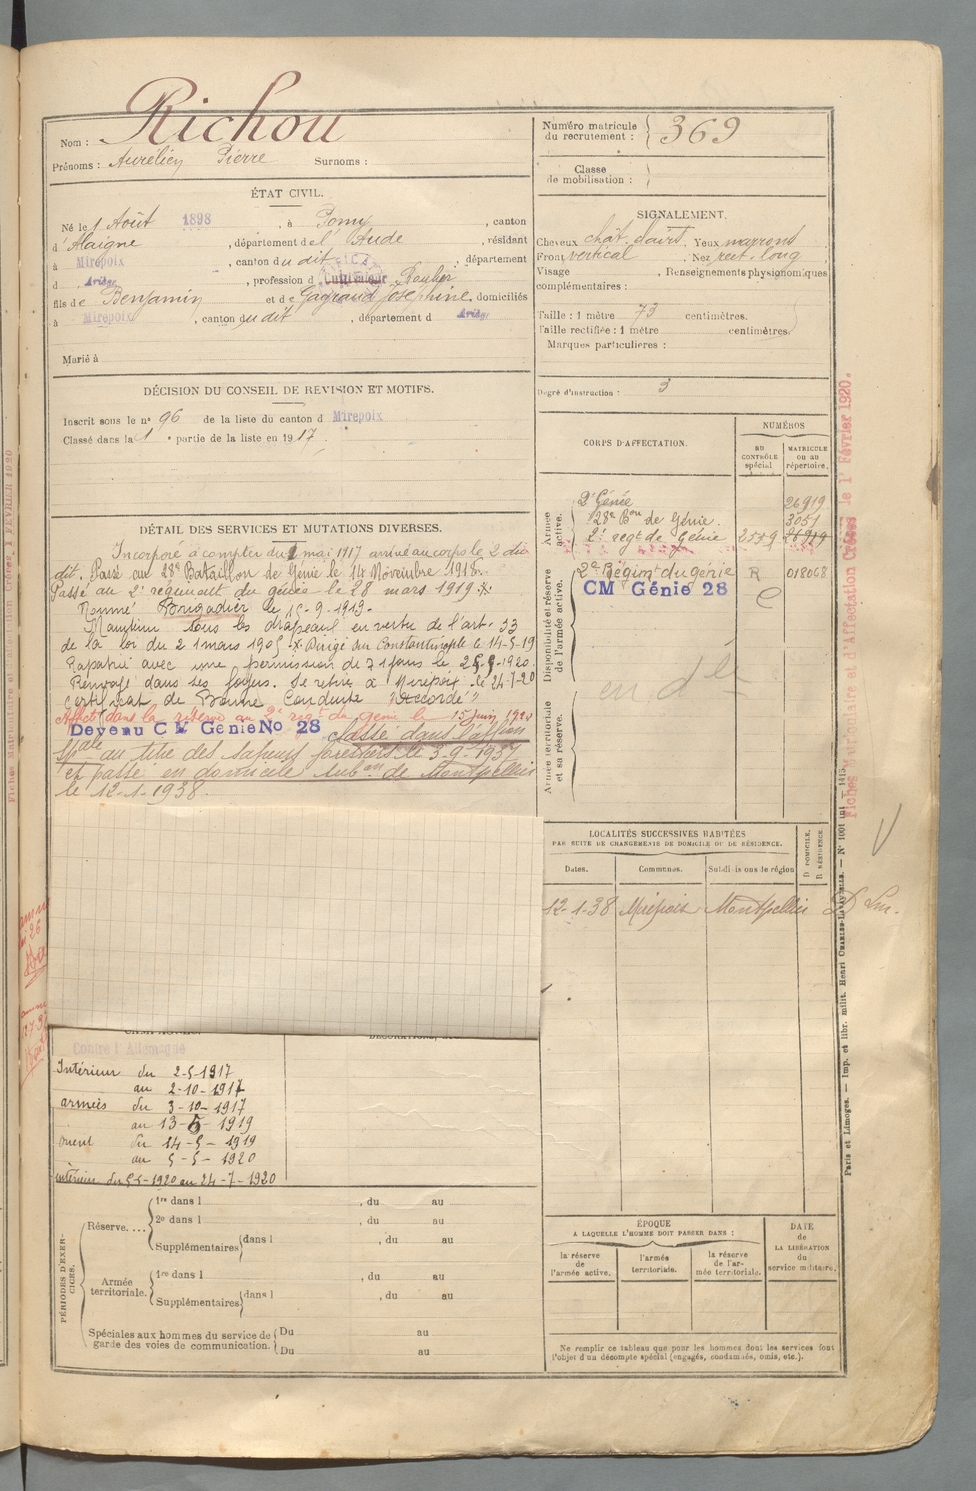 Richou
Nom :
Prénoms : Aurélien Pierre Surnoms :
Numéro matricule du recrutement : 369
Classe de mobilisation :
ÉTAT CIVIL.
Né le 1 Août 1898, à Pomy, canton
d'Alaigne, département de l'Aude, résidant
à Mirepoix, canton du dit, département
d Ariège, profession d Cultivateur Roulier
fils de Benjamin et de Joséphine, domiciliés
à Mirepoix, canton du dit, département d Ariège
Marié à
SIGNALEMENT.
Cheveux chât. clairs. Yeux marrons
Front vertical. Nez rect. long
Visage Renseignements physionomiques
complémentaires :
Taille : 1 mètre 73 centimètres.
Taille rectifiée : 1 mètre centimètres.
Marques particulières :
Degré d'instruction : 3
DÉCISION DU CONSEIL DE REVISION ET MOTIFS.
Inscrit sous le n° 96 de la liste du canton d Mirepoix
Classé dans la 1e partie de la liste en 1917.
CORPS D'AFFECTATION.
NUMÉROS
AU CONTRÔLE spécial
MATRICULE OU AU répertoire.
Armée active.
2e Génie 26919
28e Bon de Génie. 3051
2e regt de Génie 2559 26919
Disponibilité et réserve de l'armée active.
2e Régimt du génie R 018068
CM Génie 28
Armée territoriale et sa réserve.
DÉTAIL DES SERVICES ET MUTATIONS DIVERSES.
Incorporé à compter du 1 mai 1917 arrivé au corps le 2 du
dit. Passé au 28e Bataillon de Génie le 14 Novembre 1918.
Passé au 2e régiment du génie le 28 mars 1919.
Nommé Brigadier le 15-9-1919.
Maintenu sous les drapeaux en vertu de l'art. 33
de la loi du 21 mars 1905 Dirigé sur Constantinople le 14-5-19
Rapatrié avec une permission de 71 jours le 5-5-1920.
Renvoyé dans ses foyers. Se retire à Mirepoix le 24-7-20
Certificat de Bonne Conduite "Accordé"
Affecté dans la réserve au 2e regt du génie le 15 Juin 192
Devenu CM Génie No 28 classé dans l'affon
spale au titre des sapeurs forestiers le 3-9-1937
et passé en domicile subon de Montpellier
le 12-1-1938.
LOCALITÉS SUCCESSIVES HABITÉES
PAR SUITE DE CHANGEMENTS DE DOMICILE OU DE RÉSIDENCE.
Dates. Communes. Subdivisions de région
D DOMICILE. R RÉSIDENCE.
12-1-38 Mirepoix Montpellier D
Contre l'Allemagne
Intérieur du 2-5-1917
au 2-10-1917
armées du 3-10-1917
au 13-5-1919
orient du 14-5-1919
au 5-5-1920
intérieur du 5-5-1920 au 24-7-1920
PÉRIODES D'EXERCICES.
Réserve....
1re dans l , du au
2e dans l , du au
Supplémentaires dans l , du au
Armée territoriale.
1re dans l , du au
Supplémentaires dans l , du au
Spéciales aux hommes du service de garde des voies de communication.
Du au
Du au
ÉPOQUE
A LAQUELLE L'HOMME DOIT PASSER DANS :
la réserve de l'armée active.
l'armée territoriale.
la réserve de l'armée territoriale.
DATE de LA LIBÉRATION du service militaire.
Ne remplir ce tableau que pour les hommes dont les services font
l'objet d'un décompte spécial (engagés, condamnés, omis, etc.).
Fiches Matriculaire et d'Affectation Créées le 1er Février 1920.
Paris et Limoges. — Imp. et libr. milit. Henri CHARLES-LAVAUZELLE. —